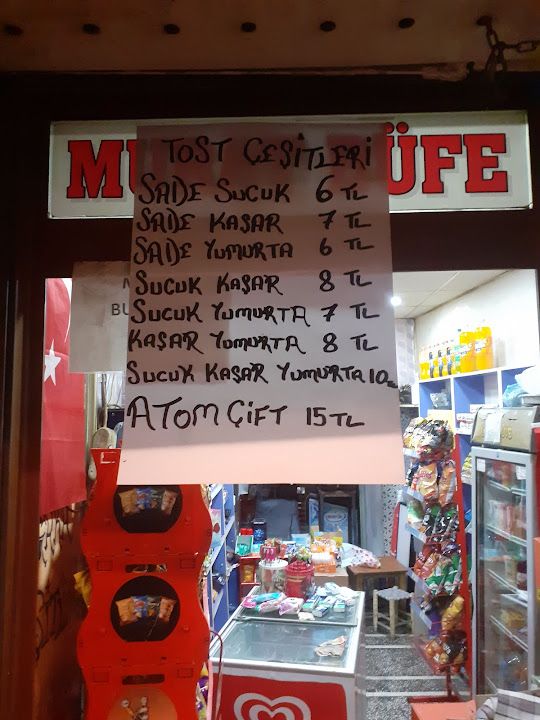 TOST ÇEŞİTLERİ
MU ÜFE
SADE SUCUK 6 TL
SADE KAŞAR 7 TL
SADE YUMURTA 6 TL
SUCUK KAŞAR 8 TL
SUCUK YUMURTA 7 TL
KAŞAR YUMURTA 8 TL
SUCUK KAŞAR YUMURTA 10 TL
ATOM ÇİFT 15 TL